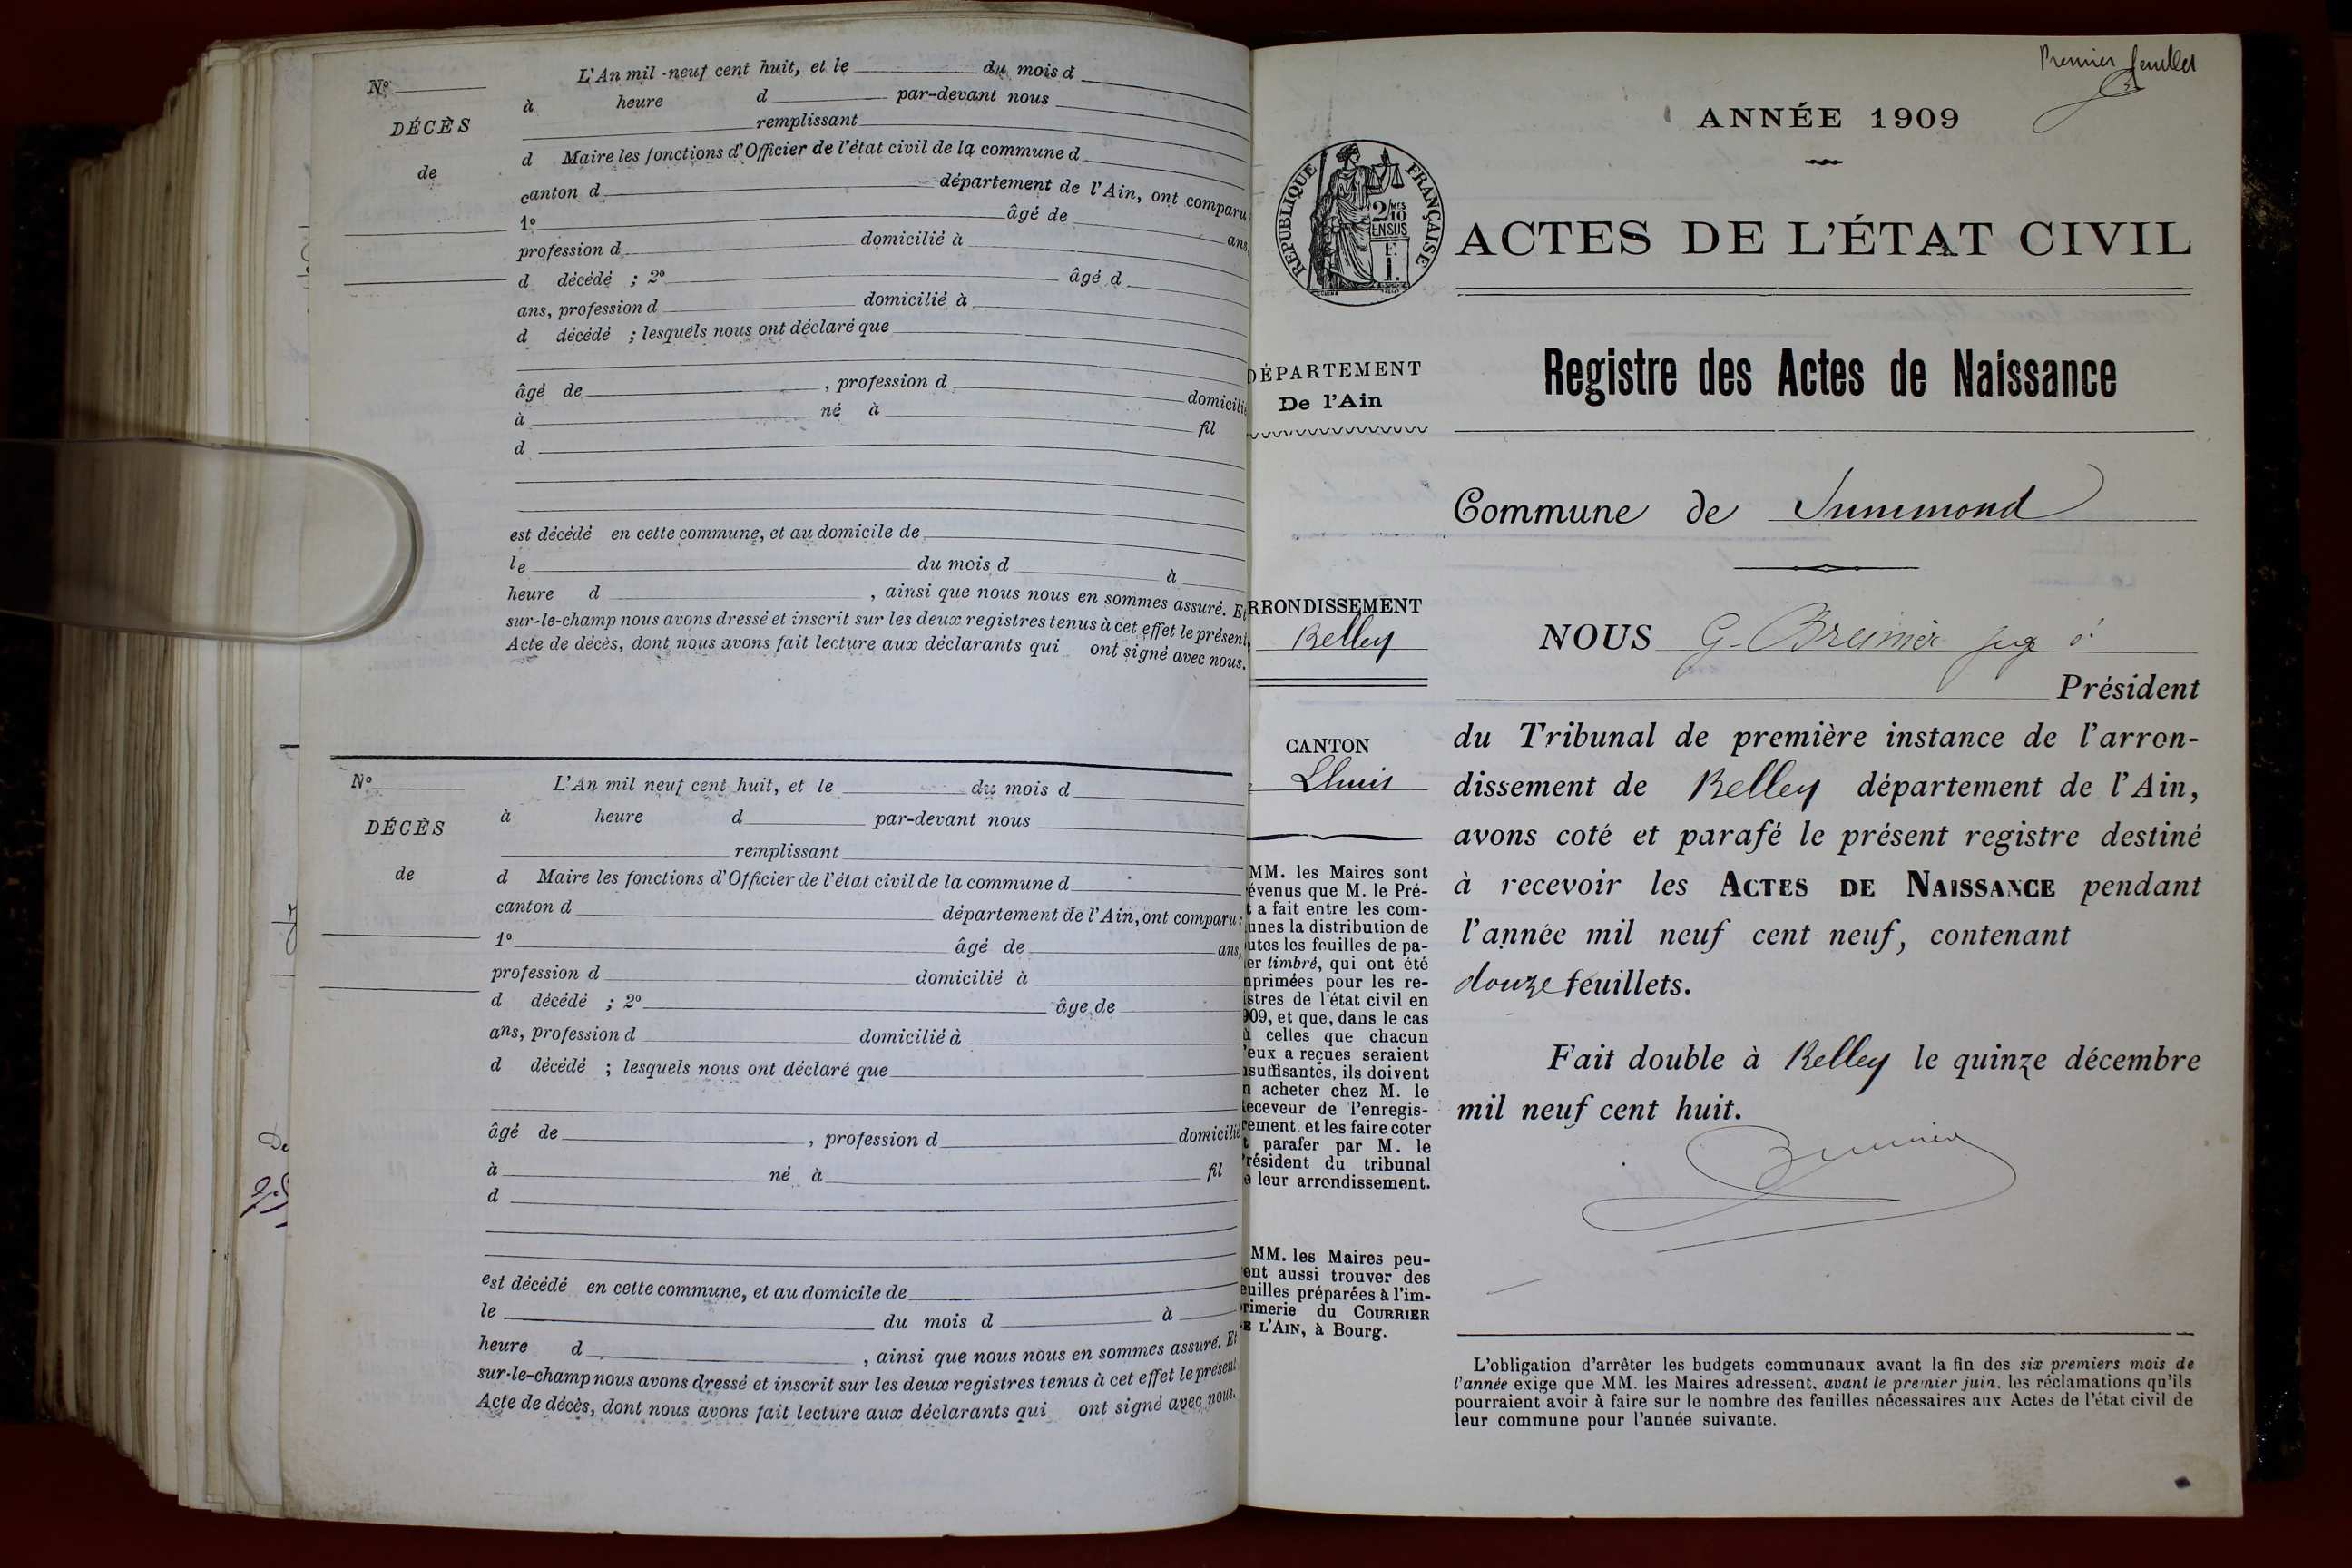 N°
DÉCÈS
de
L'An mil neuf cent huit, et le du mois d
à heure d par-devant nous
remplissant
d Maire les fonctions d'Officier de l'état civil de la commune d
canton d département de l'Ain, ont comparu :
1° âgé de ans,
profession d domicilié à
d décédé ; 2° âgé d
ans, profession d domicilié à
d décédé ; lesquels nous ont déclaré que
âgé de , profession d domicilié
à né à fil
d
est décédé en cette commune, et au domicile de
le du mois d à
heure d , ainsi que nous nous en sommes assuré. Et
sur-le-champ nous avons dressé et inscrit sur les deux registres tenus à cet effet le présent
Acte de décès, dont nous avons fait lecture aux déclarants qui ont signé avec nous.
N°
DÉCÈS
de
L'An mil neuf cent huit, et le du mois d
à heure d par-devant nous
remplissant
d Maire les fonctions d'Officier de l'état civil de la commune d
canton d département de l'Ain, ont comparu :
1° âgé de ans,
profession d domicilié à
d décédé ; 2° âge de
ans, profession d domicilié à
d décédé ; lesquels nous ont déclaré que
âgé de , profession d domicilié
à né à fil
d
est décédé en cette commune, et au domicile de
le du mois d à
heure d , ainsi que nous nous en sommes assuré. Et
sur-le-champ nous avons dressé et inscrit sur les deux registres tenus à cet effet le présent
Acte de décès, dont nous avons fait lecture aux déclarants qui ont signé avec nous.
Premier feuillet
ANNÉE 1909
RÉPUBLIQUE FRANÇAISE
2/10 MES
EN SUS
1F.
ACTES DE L'ÉTAT CIVIL
DÉPARTEMENT
De l'Ain
Registre des Actes de Naissance
Commune de
RRONDISSEMENT
Belley
CANTON
Lhuis
MM. les Maires sont
évenus que M. le Pré-
t a fait entre les com-
unes la distribution de
utes les feuilles de pa-
er timbré, qui ont été
nprimées pour les re-
istres de l'état civil en
909, et que, dans le cas
ù celles que chacun
'eux a reçues seraient
nsuffisantes, ils doivent
n acheter chez M. le
eceveur de l'enregis-
rement et les faire coter
t parafer par M. le
résident du tribunal
e leur arrondissement.
MM. les Maires peu-
ent aussi trouver des
euilles préparées à l'im-
rimerie du COURRIER
E L'AIN, à Bourg.
NOUS G.
Président
du Tribunal de première instance de l'arron-
dissement de Belley département de l'Ain,
avons coté et parafé le présent registre destiné
à recevoir les ACTES DE NAISSANCE pendant
l'année mil neuf cent neuf, contenant
douze feuillets.
Fait double à Belley le quinze décembre
mil neuf cent huit.
L'obligation d'arrêter les budgets communaux avant la fin des six premiers mois de
l'année exige que MM. les Maires adressent, avant le premier juin, les réclamations qu'ils
pourraient avoir à faire sur le nombre des feuilles nécessaires aux Actes de l'état civil de
leur commune pour l'année suivante.